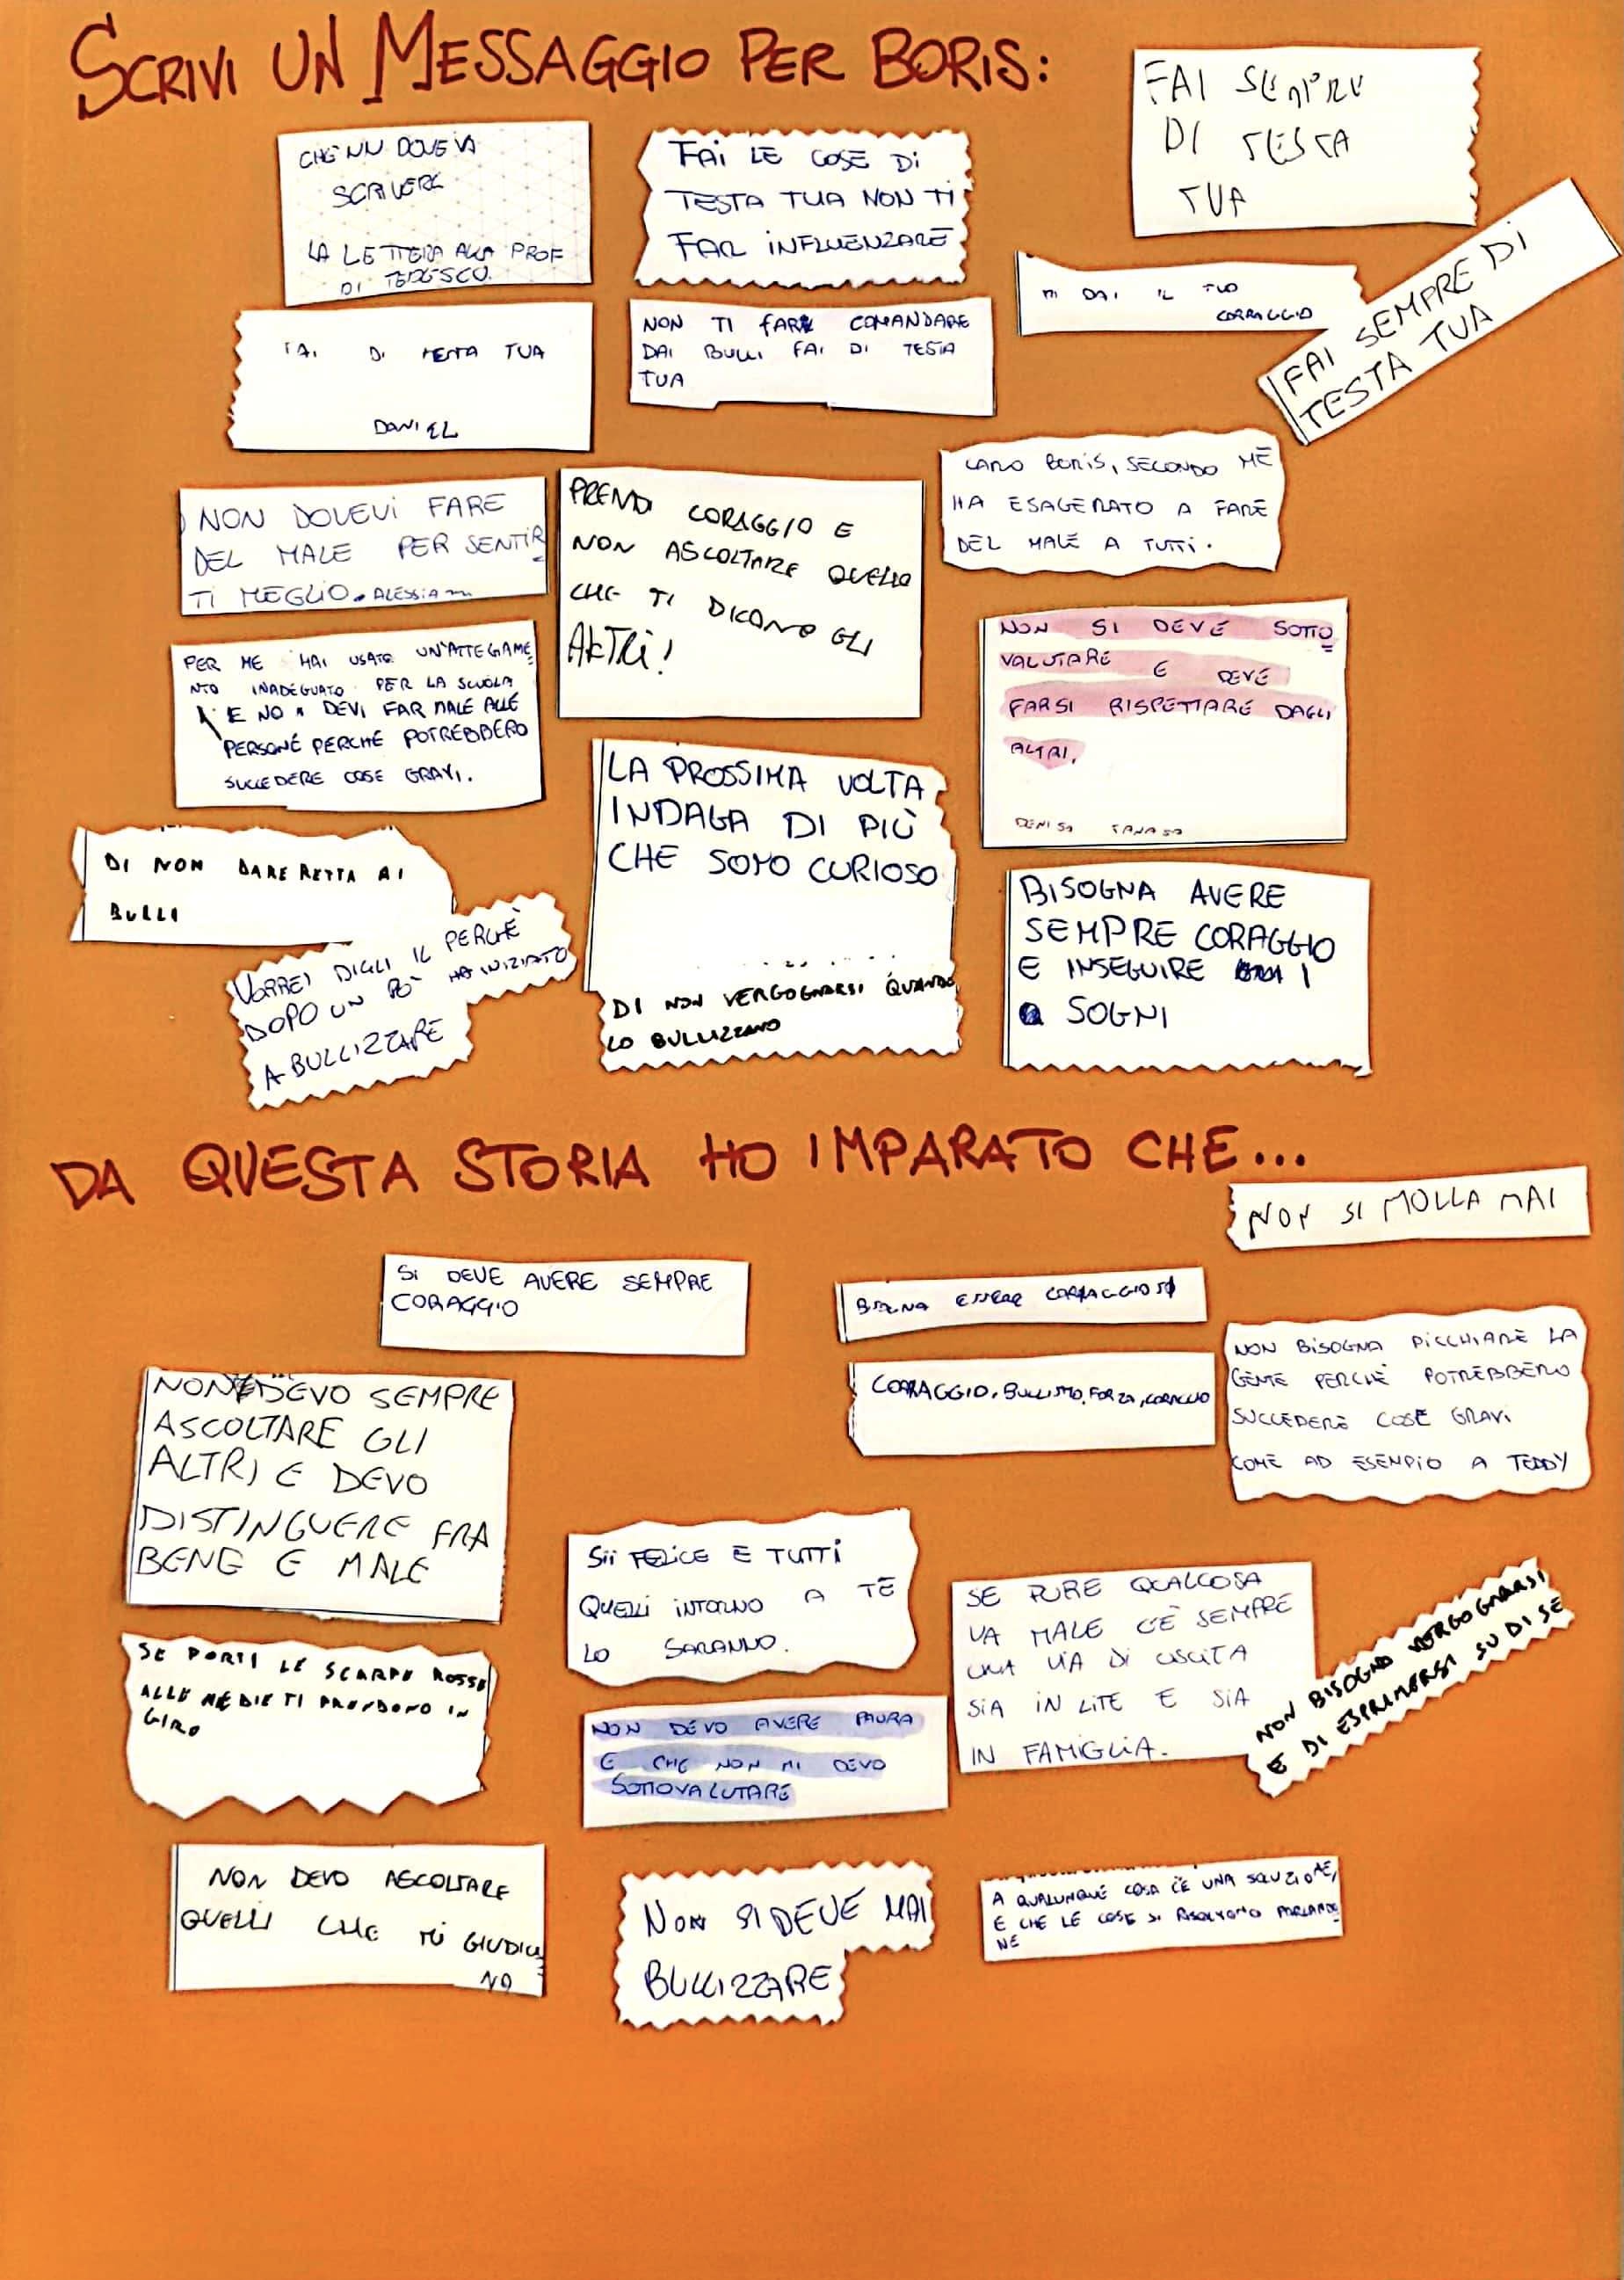 SCRIVI UN MESSAGGIO PER BORIS:
FAI SEMPRE
DI TESTA
TUA
CHE NN DOVEVA
SCRIVERE
LA LETTERA ALLA PROF
DI TEDESCO.
FAI LE COSE DI
TESTA TUA NON TI
FAR INFLUENZARE
MI DAI IL TUO
CORRAGGIO
FAI SEMPRE DI
TESTA TUA
FAI DI TESTA TUA
DANIEL
NON TI FARE COMANDARE
DAI BULLI FAI DI TESTA
TUA
CARO BORIS, SECONDO ME
HA ESAGERATO A FARE
DEL MALE A TUTTI.
NON DOVEVI FARE
DEL MALE PER SENTIR
TI MEGLIO. ALESSIA
PRENDI CORAGGIO E
NON ASCOLTARE QUELLO
CHE TI DICONO GLI
ALTRI!
NON SI DEVE SOTTO
VALUTARE E DEVE
FARSI RISPETTARE DAGLI
ALTRI.
DENISA TANASA
PER ME HAI USATO UN'ATTEGAME
NTO INADEGUATO PER LA SCUOLA
E NON DEVI FAR MALE ALLE
PERSONE PERCHÉ POTREBBERO
SUCCEDERE COSE GRAVI.
LA PROSSIMA VOLTA
INDAGA DI PIÙ
CHE SONO CURIOSO
DI NON DARE RETTA AI
BULLI
VORREI DIGLI IL PERCHÈ
DOPO UN PO' HA INIZIATO
A BULLIZZARE
DI NON VERGOGNARSI QUANDO
LO BULLIZZANO
BISOGNA AVERE
SEMPRE CORAGGIO
E INSEGUIRE I
SOGNI
DA QUESTA STORIA HO IMPARATO CHE...
NON SI MOLLA MAI
SI DEVE AVERE SEMPRE
CORAGGIO
ESSERE CORRAGGIOSI
CORRAGGIO, BULLISMO, FORZA,
NON BISOGNA PICCHIARE LA
GENTE PERCHÈ POTREBBERO
SUCCEDERE COSE GRAVI
COME AD ESEMPIO A TEDDY
NON DEVO SEMPRE
ASCOLTARE GLI
ALTRI E DEVO
DISTINGUERE FRA
BENE E MALE
SII FELICE E TUTTI
QUELLI INTORNO A TE
LO SARANNO.
SE PURE QUALCOSA
VA MALE C'È SEMPRE
UNA VIA DI USCITA
SIA IN LITE E SIA
IN FAMIGLIA.
NON BISOGNO VERGOGNARSI
E DI ESPRIMERSI SU DI SE
SE PORTI LE SCARPE ROSSE
ALLE MEDIE TI PRENDONO IN
GIRO
NON DEVO AVERE PAURA
E CHE NON MI DEVO
SOTTOVALUTARE
NON DEVO ASCOLTARE
QUELLI CHE MI GIUDICA
NO
NON SI DEVE MAI
BULLIZZARE
A QUALUNQUE COSA C'È UNA SOLUZIONE,
E CHE LE COSE SI RISOLVONO PARLANDO
NE